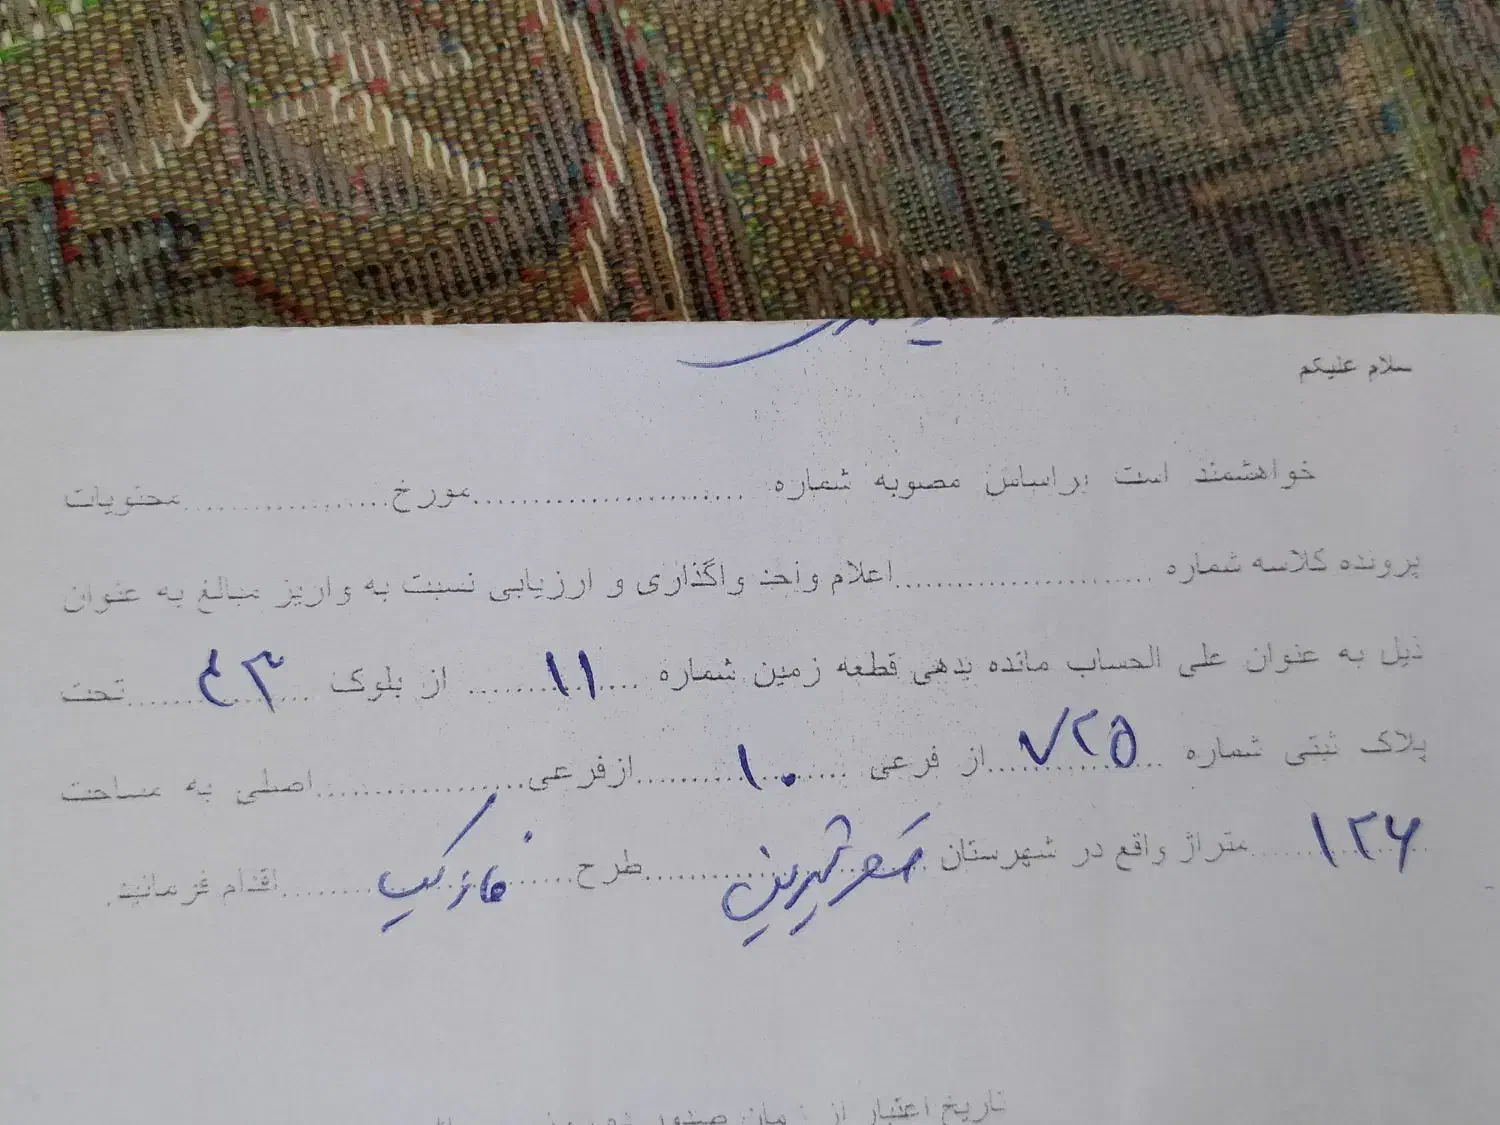 سلام علیکم
خواهشمند است براساس مصوبه شماره ........................مورخ..................محتویات
پرونده کلاسه شماره .......................اعلام واحد واگذاری و ارزیابی نسبت به واریز مبالغ به عنوان
ذیل به عنوان علی الحساب مانده بدهی قطعه زمین شماره ....۱۱.... از بلوک ....۴۳.... تحت
پلاک ثبتی شماره ....۷۲۵....از فرعی ....۱۰....ازفرعی..................اصلی به مساحت
....۱۲۶....متراژ واقع در شهرستان ....قصرشیرین....طرح....فاز یک....اقدام فرمائید.
تاریخ اعتبار از زمان صدور